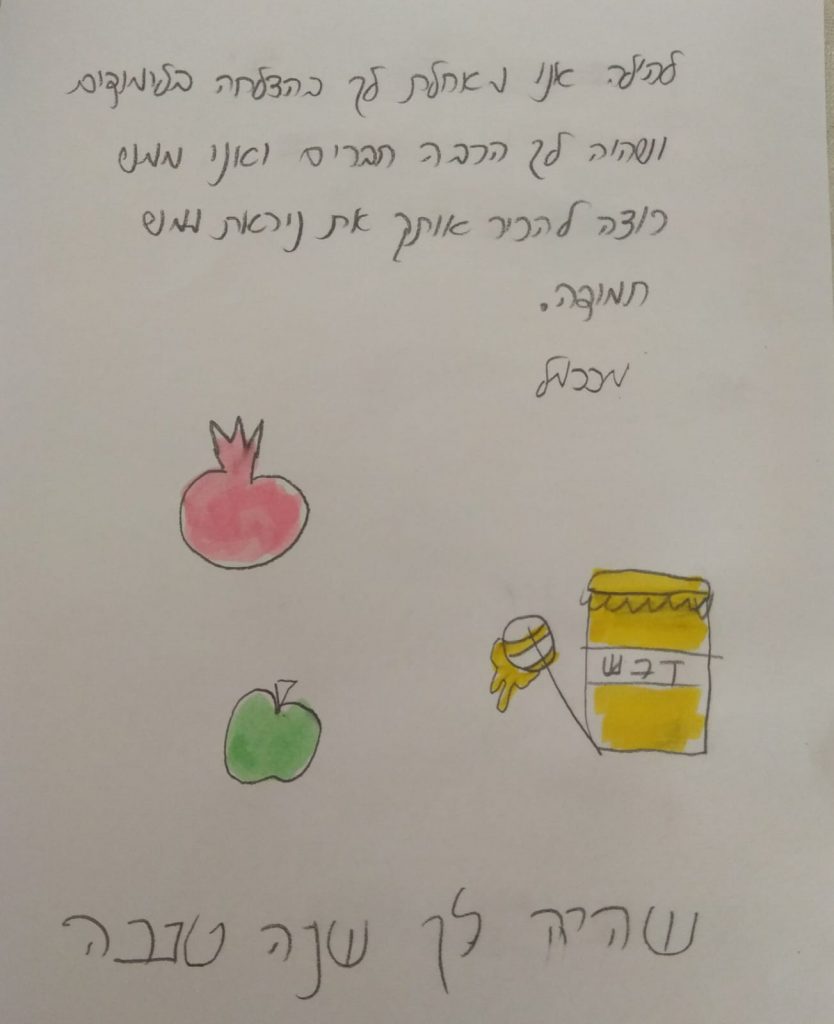 להילה אני מאחלת לך בהצלחה בלימודים
ושהיה לך הרבה חברים ואני ממש
רוצה להכיר אותך את ניראת ממש
חמודה.
מכרמל
דבש
שהיה לך שנה טובה